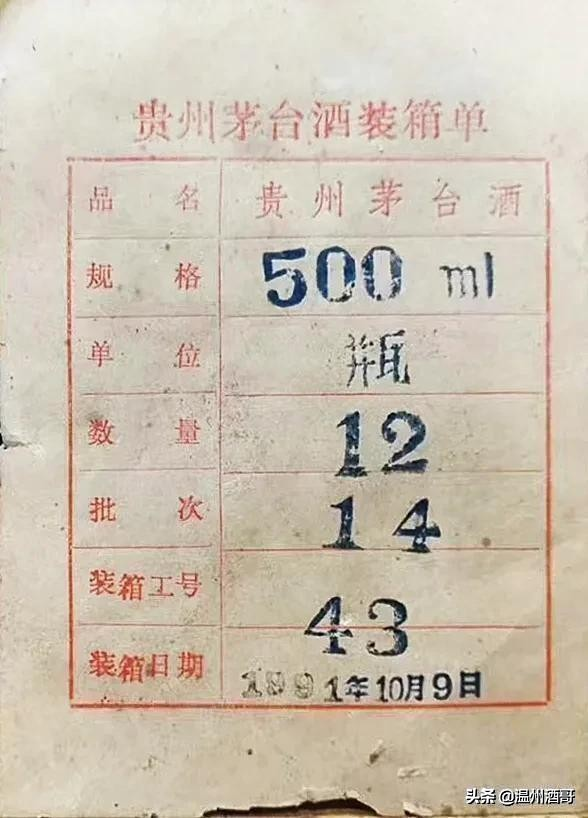 贵州茅台酒装箱单
品名 贵州茅台酒
规格 500 ml
单位 瓶
数量 12
批次 14
装箱工号 43
装箱日期 1991年10月9日
头条 @温州酒哥